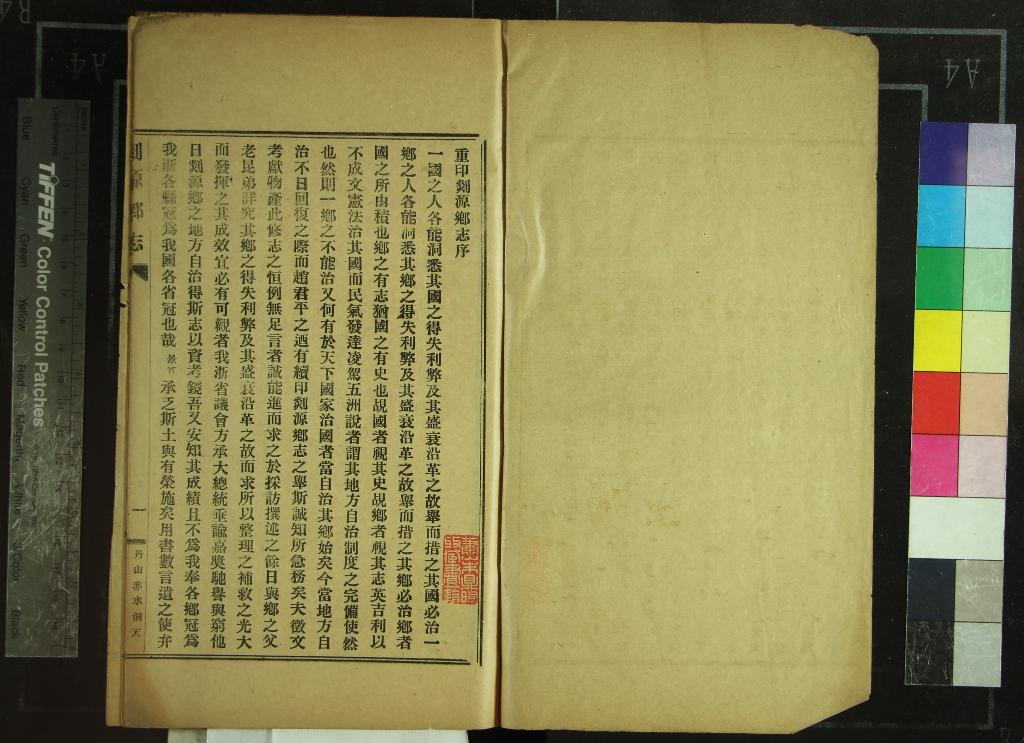 重印剡源鄉志序
一國之人各能洞悉其國之得失利弊及其盛衰沿革之故舉而措之其國必治一
鄉之人各能洞悉其鄉之得失利弊及其盛衰沿革之故舉而措之其鄉必治鄉者
國之所由積也鄉之有志猶國之有史也覘國者視其史覘鄉者視其志英吉利以
不成文憲法治其國而民氣發達凌駕五洲說者謂其地方自治制度之完備使然
也然則一鄉之不能治又何有於天下國家治國者當自治其鄉始矣今當地方自
治不日回復之際而趙君平之迺有續印剡源鄉志之舉斯誠知所急務矣夫徵文
考獻物產此修志之恒例無足言者誠能進而求之於採訪撰述之餘日與鄉之父
老昆弟詳究其鄉之得失利弊及其盛衰沿革之故而求所以整理之補救之光大
而發揮之其成效宜必有可觀者我浙省議會方承大總統垂諭嘉獎馳譽與窮他
日剡源鄉之地方自治得斯志以資考鏡吾又安知其成績且不爲我奉各鄉冠爲
我浙各縣冠爲我國各省冠也哉 承乏斯土與有榮施矣用書數言遺之使弁
剡源鄉志
一
丹山赤水洞天
TIFFEN Color Control Patches
Blue
Cyan
Green
Yellow
Red
Magenta
White
3/Color
Black
A4
A4